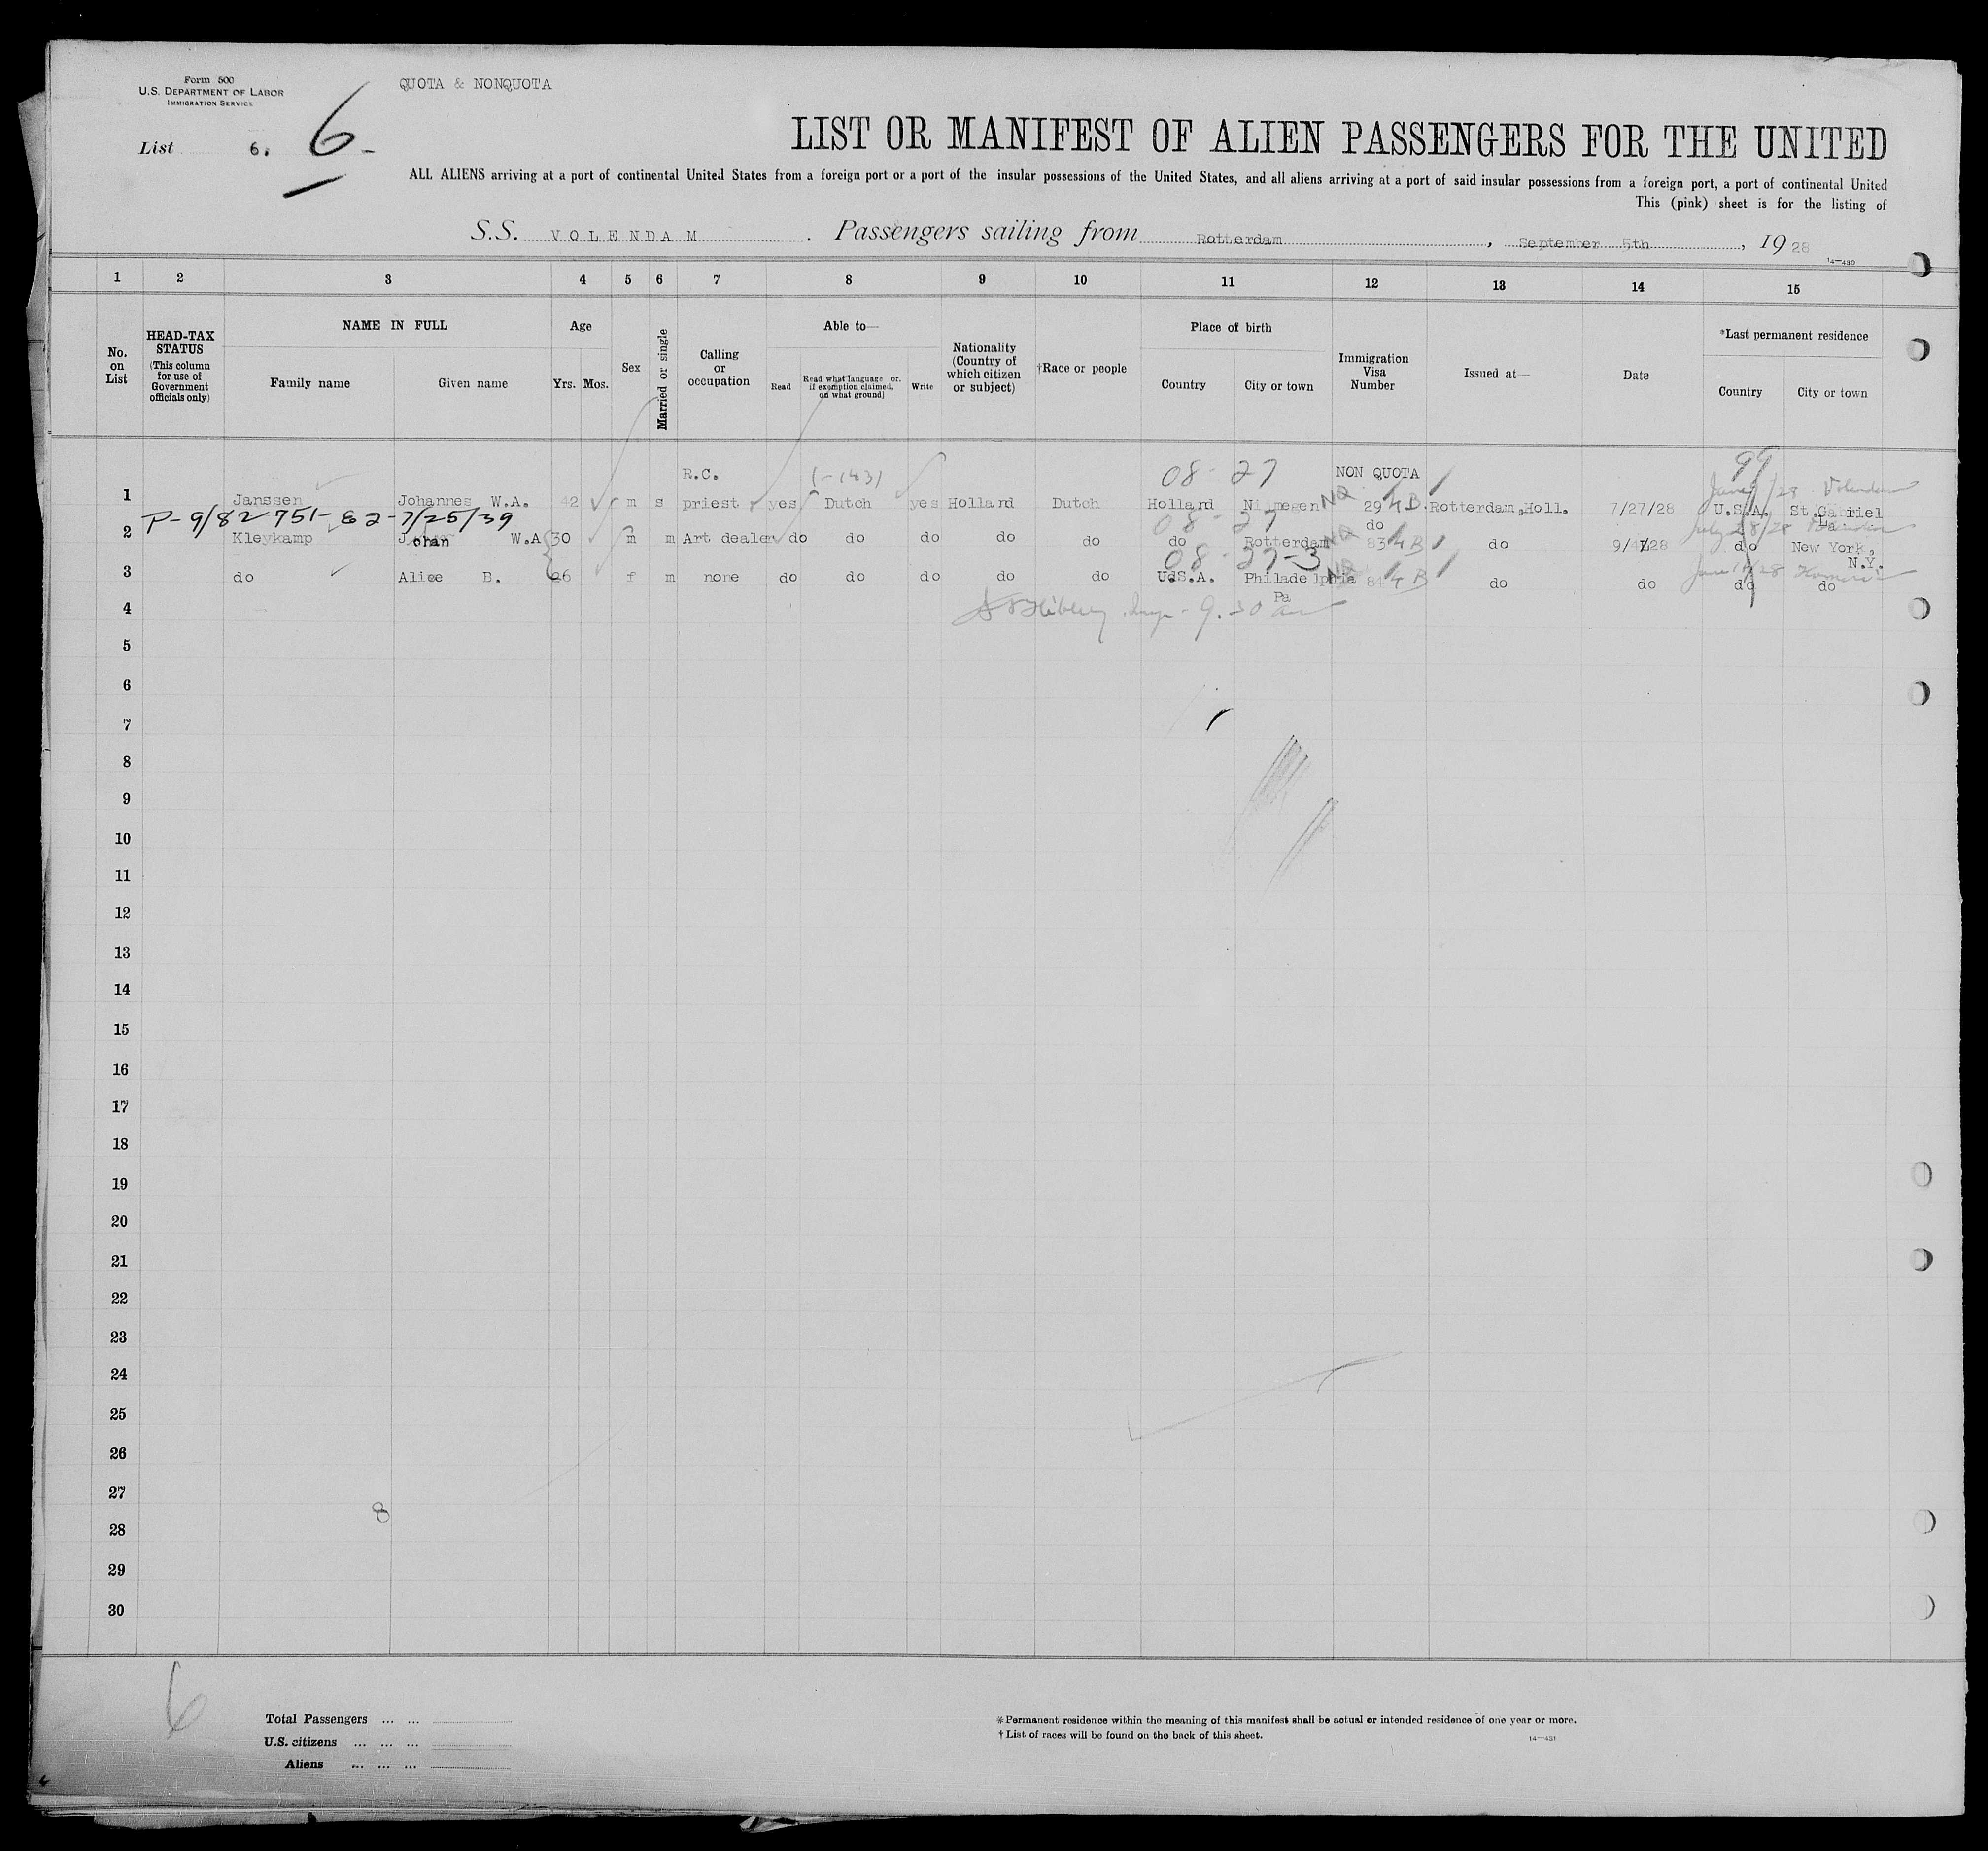 Form 500
U.S. DEPARTMENT OF LABOR
IMMIGRATION SERVICE
QUOTA & NONQUOTA
List 6. 6-
LIST OR MANIFEST OF ALIEN PASSENGERS FOR THE UNITED
ALL ALIENS arriving at a port of continental United States from a foreign port or a port of the insular possessions of the United States, and all aliens arriving at a port of said insular possessions from a foreign port, a port of continental United
This (pink) sheet is for the listing of
S.S. VOLENDAM. Passengers sailing from Rotterdam, September 5th, 1928
14-430
1 2 3 4 5 6 7 8 9 10 11 12 13 14 15
No. on List
HEAD-TAX STATUS (This column for use of Government officials only)
NAME IN FULL
Family name
Given name
Age
Yrs. Mos.
Sex
Married or single
Calling or occupation
Able to—
Read
Read what language or, if exemption claimed, on what ground]
Write
Nationality (Country of which citizen or subject)
†Race or people
Place of birth
Country
City or town
Immigration Visa Number
Issued at—
Date
*Last permanent residence
Country
City or town
R.C. 08-27 NON QUOTA 99
1 Janssen Johannes W.A. 42 m s priest yes Dutch yes Holland Dutch Holland Nijmegen NQ 29 4B Rotterdam,Holl. 7/27/28 U.S.A. St.Gabriel
P-9/82751-82-7/25/39 08-27 do La
2 Kleykamp Johan W.A 30 m m Art dealer do do do do do do Rotterdam NQ 83 4B do 9/4/28 do New York, N.Y.
08-27-3
3 do Alice B. 26 f m none do do do do do U.S.A. Philadelphia Pa NQ 84 4B do do do do
4
5
6
7
8
9
10
11
12
13
14
15
16
17
18
19
20
21
22
23
24
25
26
27
8
28
29
30
6
Total Passengers ... ...
U.S. citizens ... ... ...
Aliens ... ... ...
* Permanent residence within the meaning of this manifest shall be actual or intended residence of one year or more.
† List of races will be found on the back of this sheet.
14-431